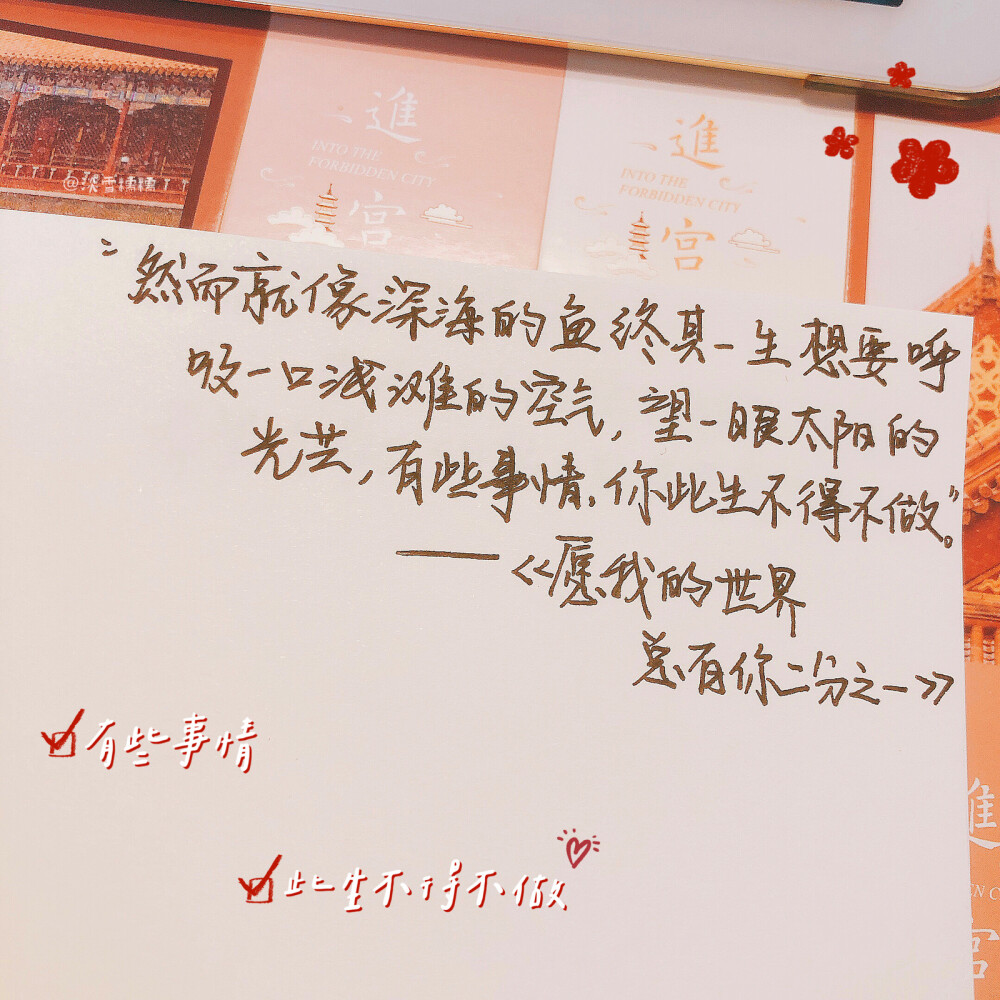 @深雪糯糯
進
INTO THE
FORBIDDEN CITY
宫
進
INTO THE
FORBIDDEN CITY
宫
"然而就像深海的鱼终其一生想要呼
吸一口浅滩的空气,望一眼太阳的
光芒,有些事情,你此生不得不做。"
——《愿我的世界
总有你二分之一》
有些事情
此生不得不做
進
EN C
宫